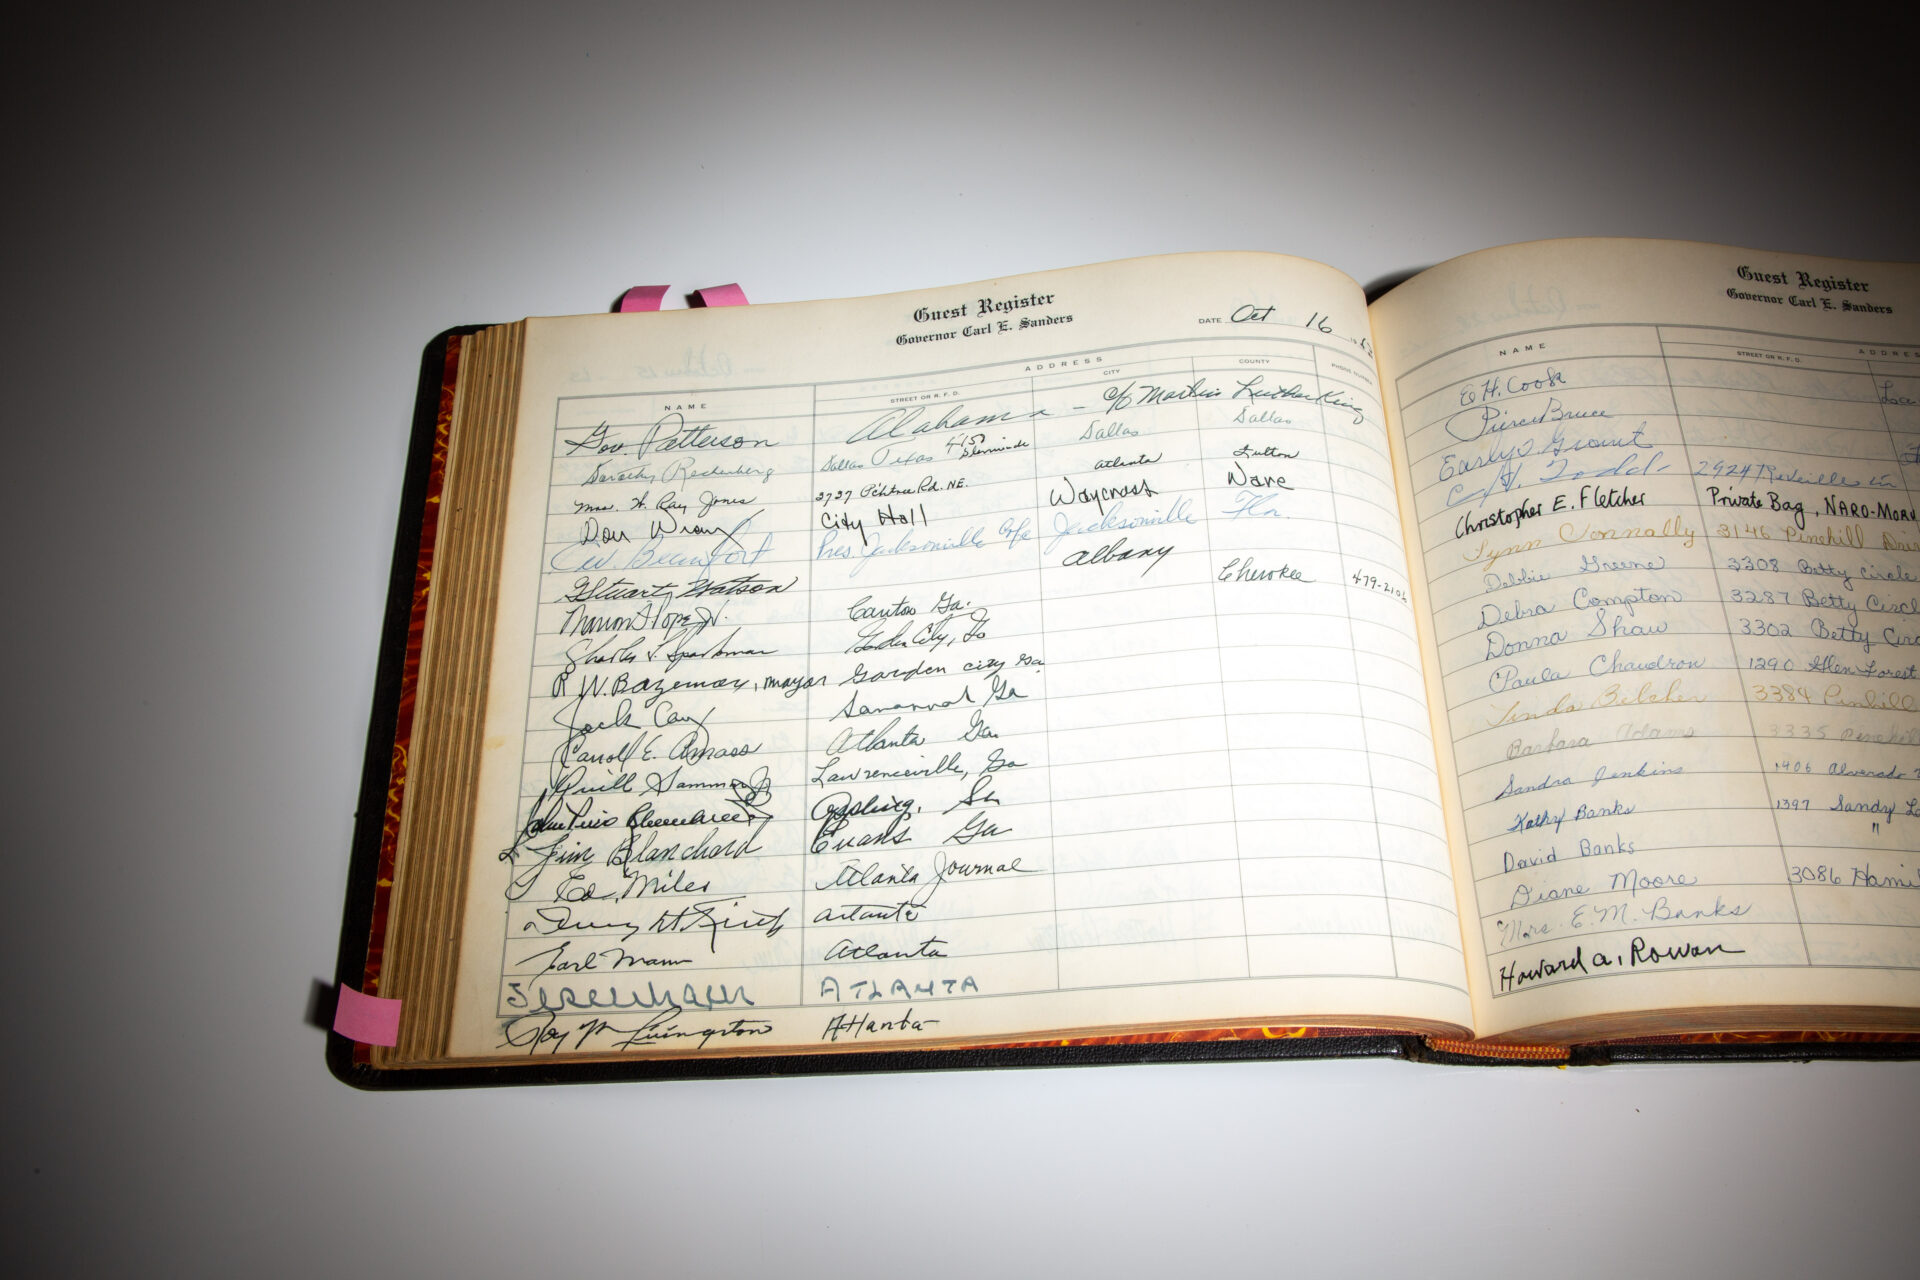 Guest Register
Governor Carl E. Sanders
DATE Oct 16
ADDRESS
NAME STREET OR R. F. D. CITY COUNTY PHONE NUMBER
Gov. Patterson Alabama - c/o Martin Luther King
Dorothy Dallas Texas Dallas Dallas
Mrs. H. Ray Jones 2727 P'chtree Rd. NE. Atlanta Fulton
Don City Hall Waycross Ware
W. Beaufort Pres. Jacksonville Jacksonville Fla.
G Stuart Watson Albany
Marion T Pope Jr. Canton Ga. Cherokee 479-2106
Charles L. Sparkman Garden City, Ga
R W. Bazemore, mayor Garden City Ga
Jack Cay Savannah Ga
Carroll E. Amass Atlanta Ga.
Lawrenceville, Ga
Jim Blanchard Evans Ga
Ed. Miles Atlanta Journal
Atlanta
Earl Mann Atlanta
ATLANTA
Roy M Livingston Atlanta
Guest Register
Governor Carl E. Sanders
NAME STREET OR R. F. D. ADDRESS
E H. Cook La
Pierce Bruce
Early Grant
Todd 2924 Reveille Ln
Christopher E. Fletcher Private Bag, NARO-MORU
Lynn Connally 3146 Pinehill Drive
Debbie Greene 3308 Betty Circle
Debra Compton 3287 Betty Circl
Donna Shaw 3302 Betty Circ
Paula Chaudron 1290 Glen Forest
Linda Belcher 3384 Pinhill
Barbara Adams 3335 Pinehill
Sandra Jenkins 1406 Alverado
Kathy Banks 1397 Sandy
David Banks "
Diane Moore 3086 Hami
Mrs. E. M. Banks
Howard A. Rowan